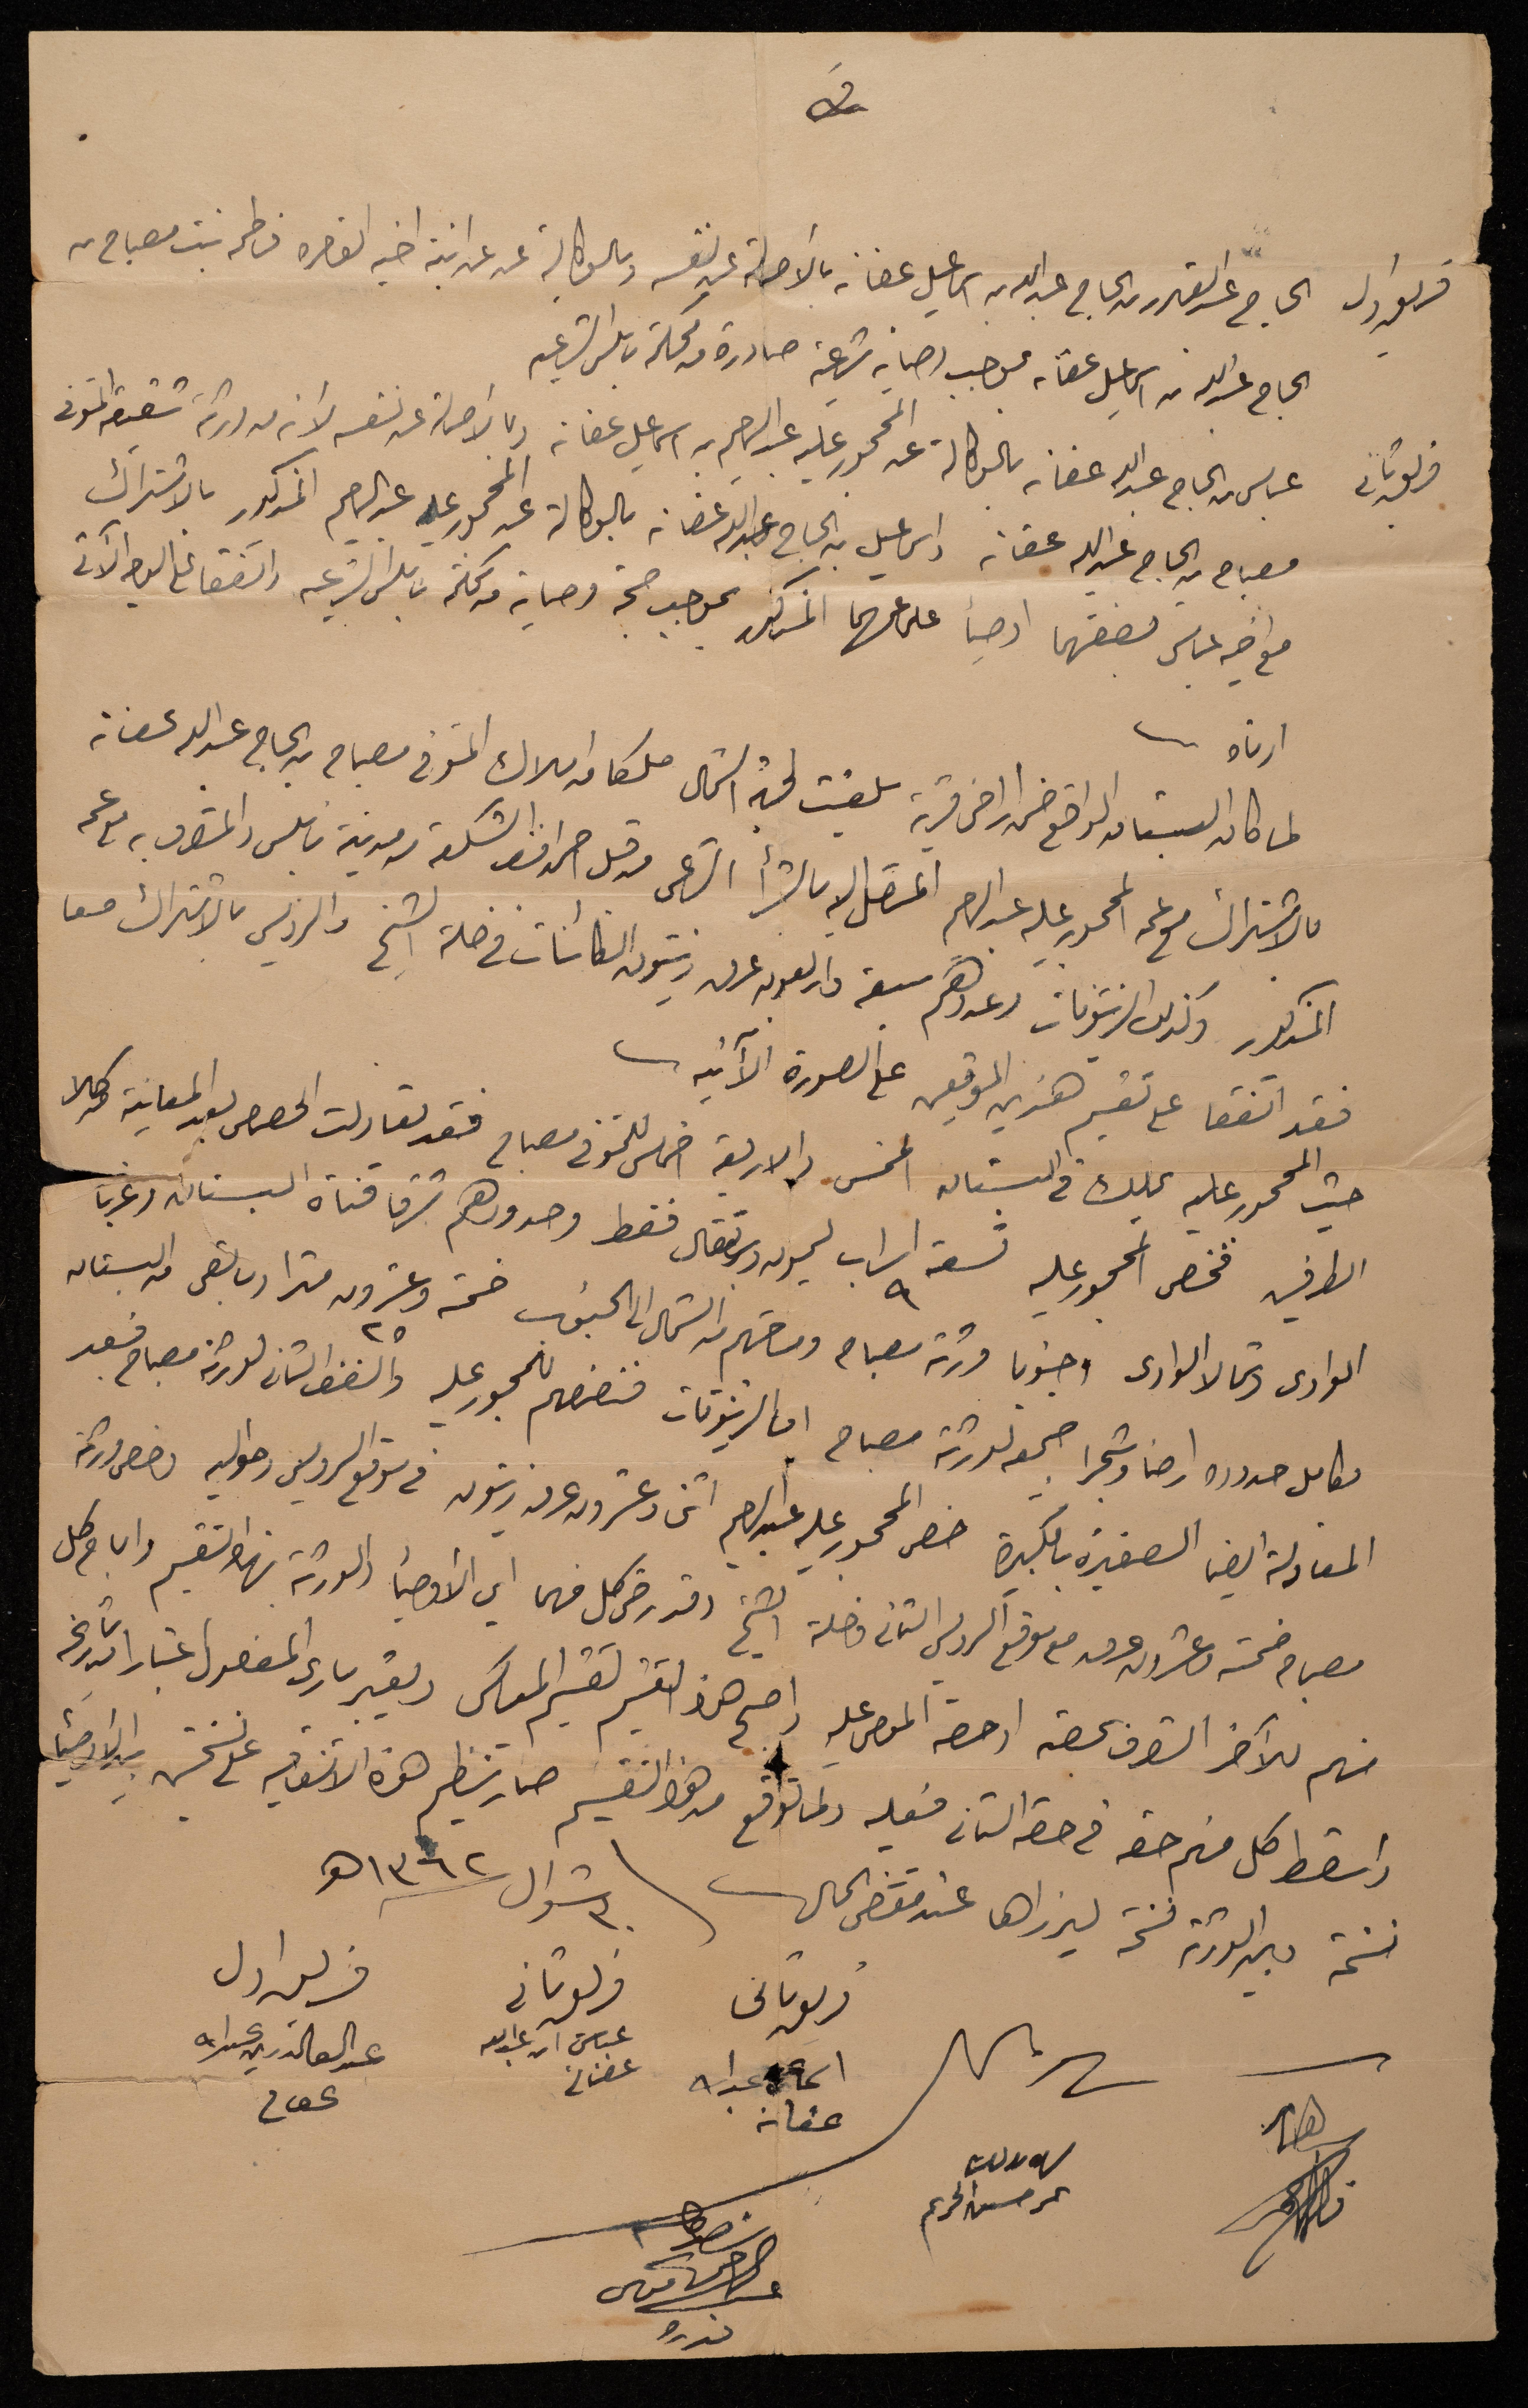 فريق اول الحاج عبد القادر بن الحاج عبد الله بن اسماعيل عفانه بالأصالة عن نفسه وبالوكالة عن ابنة اخيه القاصره فاطمه بنت مصباح بن
الحاج عبد الله بن اسماعيل عفانه بموجب وصاية شرعية صادرة من محكمة نابلس الشرعيه
فريق ثاني عباس بن الحاج عبد الله عفانه بالوكالة عن المحجور عليه عبد الرحيم بن اسماعيل عفانه وبالأصالة عن نفسه لأنه من ورثة شقيقه المتوفى
مصباح بن الحاج عبد الله عفانه واسماعيل بن الحاج عبد الله عفانه بالوكالة عن المحجور عليه عبد الرحيم المذكور بالاشتراك
مع اخيه عباس بصفتهما اوصيأ على عمهما المذكور بموجب حجة وصاية من محكمة نابلس الشرعيه واتفقا على الوجه الآتي
ادناه
لما كان البستان الواقع ضمن اراضي قرية سلفيت لجهة الشمال ملكا من املاك المتوفي مصباح بن الحاج عبد الله عفانه
بالاشتراك مع عمه المحجور عليه عبد الرحيم المنتقل اليه بالشرأ الشرعي من قبل احمد افندي الشكعة من مدينة نابلس والمتصرف به مع عمه
المذكور وكذلك الزيتونات وعددهم سبعة واربعون عرق زيتون الكائنات في خلة الشيخ والرويس بالاشتراك معا
فقد اتفقا على تقسيم هذين الموقعين على الصورة الآتيه
حيث المحجور عليه يملك في البستان الخمس والاربعة اخماس للمتوفي مصباح فقد تعادلت الحصص بعد المعاينة من كلا
الطرفين فخص المحجور عليه تسعة ٩ اسراب ليمون وبرتقال فقط وحدودهم شرقا قناة البستان وغربا
الوادي وشمالا الوادي وجنوبا ورثة مصباح ومساحتهم من الشمال الى الجنوب خمسة وعشرون ٢٥ مترا وباقي من البستان
بكامل حدوده ارضا وشجرا جميعه لورثة مصباح اما الزيتونات فنصفهم للمحجور عليه والنصف الثاني لورثة مصباح فبعد
المعادلة ايضا الصغيرة بالكبيرة خص المحجور عليه عبد الرحيم اثنى وعشرون عرق زيتون في موقع الرويس وحواليه وخص ورثة
مصباح خمسة وعشرون عرق مع موقع الرويس الثاني وخلة الشيخ وقد رضي كل منهما اي الأوصيأ والورثة بهذا التقسيم واباح كل
منهم للآخر التصرف بحصته او حصة الموصى عليه واصبح هذا التقسيم تقسيم المعاكس ويعتبر ساري المفعول اعتبارا من تاريخه
واسقط كل منهم حقه في حصة الثاني فعليه ولما توقع من هذا التقسيم صار تنظيم هذه الاتفاقيه على نسختين بيد الأوصيأ
نسخة وبيد الورثة نسخة ليبرزاها عند مقتضى الحال ٣٠ شوال ١٣٦٢ هـ
فريق ثاني فريق ثاني فريق اول
اسماعيل عبد الله عفانه
عباس ابن عبد الله عفانه
عبد القادر بن عبد الله عفانه